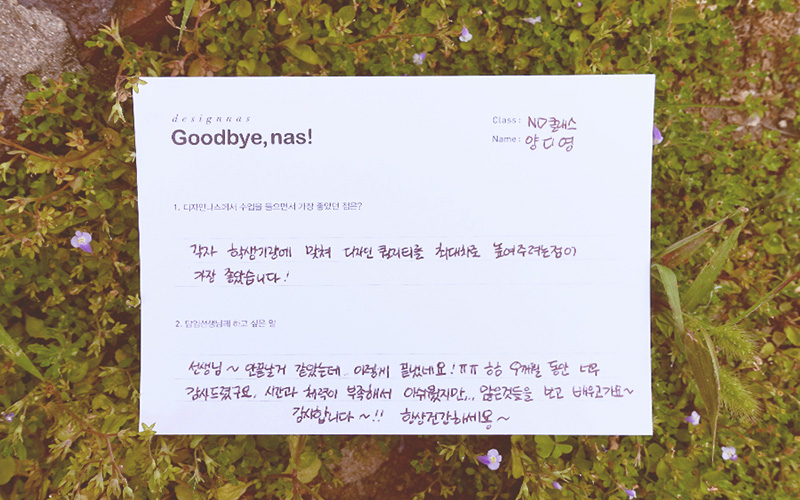 designnas
Goodbye, nas!
Class: ND클래스
Name: 양다영
1. 디자인나스에서 수업을 들으면서 가장 좋았던 점은?
각자 학생기량에 맞춰 디자인 퀄리티를 최대치로 높여주려는점이
가장 좋았습니다!
2. 담임선생님께 하고 싶은 말
선생님~ 안끝날거 같았는데 이렇게 끝났네요!ㅠㅠ 항상 9개월 동안 너무
감사드렸구요, 시간과 체력이 부족해서 아쉬웠지만... 많은것들을 보고 배우고가요~
감사합니다~!! 항상건강하세용~